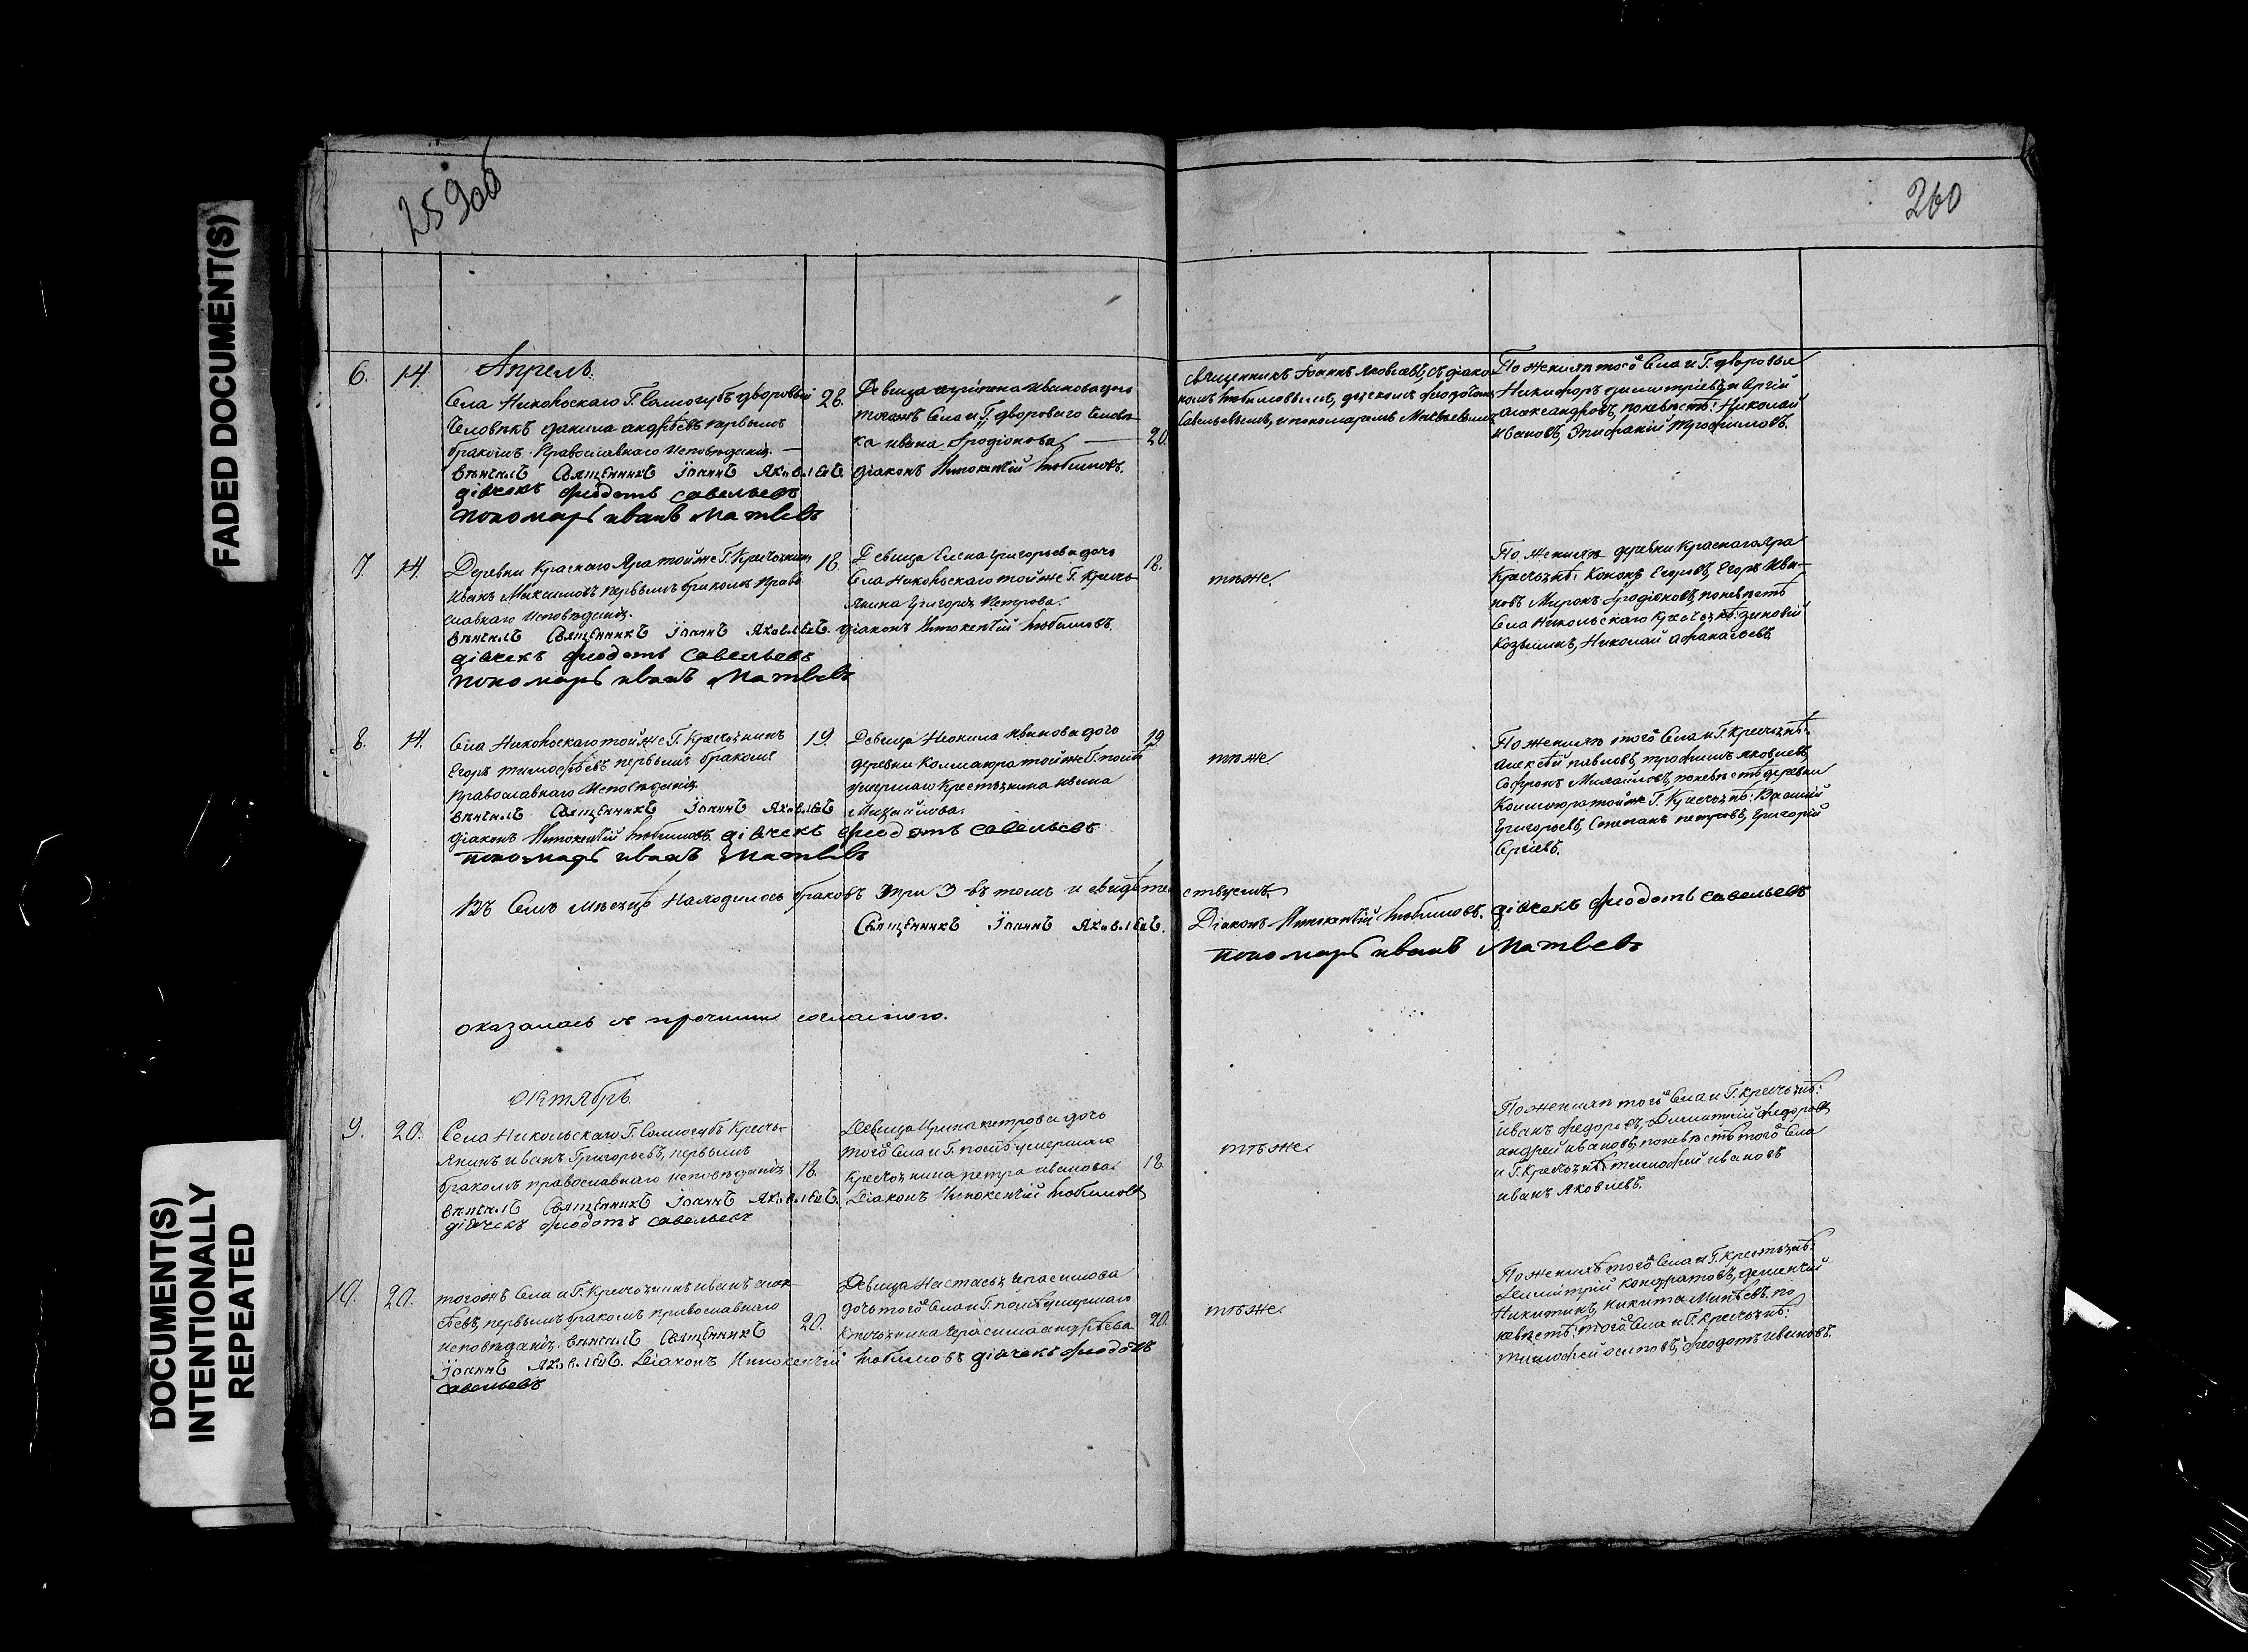 FADED DOCUMENT(S)
DOCUMENT(S)
INTENTIONALLY
REPEATED
260
Апрель.
6. 14
Села Никольскаго Г. Самогубъ дворовый 28.
Человѣкъ Данила Андрѣевъ первымъ
бракомъ Православнаго Исповѣданія.
вѣнчалъ Священникъ Іоаннъ Яковлевъ.
дiячекъ Феодотъ Савельевъ
пономарь Иванъ Матвѣевъ
Девица Иванова дочь
тогожъ Села и Г. двороваго Челове-
ка Ивана Иродіонова 20.
діаконъ Инокентій Любимовъ.
Священникъ Іоаннъ Яковлевъ, съ діако-
номъ Любимовымъ, дьячкомъ Феодотомъ
Савельевымъ, и пономаремъ Матвѣевымъ.
По женихѣ того Села и Г. дворовые
Никифоръ Димитріевъ, и Сергій
Александровъ, поневѣстѣ: Николай
Ивановъ, Епифаній Трофимовъ.
7. 14.
Деревни Краснаго Яра тойже Г. Крестьянинъ 18.
Иванъ Максимовъ первымъ бракомъ Право
славнаго Исповѣданія.
вѣнчалъ Священникъ Іоаннъ Яковлевъ.
дiячекъ Феодотъ Савельевъ
пономарь Иванъ Матвѣевъ
Девица Елена Григорьева дочь 18.
Села Никольскаго тойже Г. Кресть-
янина Григорія Петрова.
діаконъ Инокентій Любимовъ.
тѣже.
По женихѣ деревни Краснаго Яра
Крестьянѣ: Кононъ Егоровъ, Егоръ Ива-
новъ Миронъ Иродіоновъ, поневѣстѣ
Села Никольскаго Крестьянѣ: Зиновій
Козминъ, Николай Афанасьевъ.
8. 14.
Села Никольскаго тойже Г. Крестьянинъ 19.
Егоръ Тимофѣевъ первымъ бракомъ
Православнаго Исповѣданія.
вѣнчалъ Священникъ Іоаннъ Яковлевъ
Діаконъ Инокентій Любимовъ. дiячекъ Феодотъ Савельевъ
пономарь Иванъ Матвѣевъ
Девица Неонила Иванова дочь 19
деревни тойже Г. послѣ
умершаго Крестьянина Ивана
Михайлова.
тѣже.
По женихѣ того Села и Г. Крестьянѣ:
Алексѣй Павловъ, Трофимъ Яковлевъ,
Софронъ Михайловъ, поневѣстѣ деревни
тойже Г. Крестьянѣ: Василій
Григорьевъ, Степанъ Петровъ, Григорій
Сергіевъ.
Въ Семъ Мѣсяцѣ Находилось браковъ три 3 въ томъ и свидѣтельствуемъ.
Священникъ Іоаннъ Яковлевъ. Діаконъ Инокентій Любимовъ. дiячекъ Феодотъ Савельевъ
пономарь Иванъ Матвѣевъ
оказалась съ прочими согласною.
Октябрь.
9. 20.
Села Никольскаго Г. Самогубъ Кресть-
янинъ Иванъ Григорьевъ, первымъ
бракомъ православнаго исповѣданія 18.
вѣнчалъ Священникъ Іоаннъ Яковлевъ.
дiячекъ Феодотъ Савельевъ
Девица Ирина Петрова дочь
того Села и Г. послѣ умершаго
Крестьянина Петра Иванова. 18.
Діаконъ Инокентій Любимовъ
тѣже.
По женихѣ того Села и Г. крестьянѣ:
Иванъ Федоровъ, Димитрій Федоровъ,
Андрей Ивановъ, поневѣстѣ того Села
и Г. Крестьянѣ: Тимофей Ивановъ
Иванъ Яковлевъ.
10. 20.
тогожъ Села и Г. Крестьянинъ Иванъ Алек-
сѣевъ, первымъ бракомъ православнаго 20.
исповѣданія. вѣнчалъ Священникъ
Іоаннъ Яковлевъ. Діаконъ Инокентій Любимовъ дiячекъ Феодотъ
Савельевъ
Девица Настасья Герасимова
дочь того Села и Г. послѣ умершаго
Крестьянина Герасима Андрѣева 20.
тѣже.
По женихѣ того Села и Г. Крестьянѣ:
Димитрій Кондратовъ, Дементій
Никитинъ, Никита Матвѣевъ, по
невѣстѣ: того Села и Г. Крестьянѣ:
Тимофей Осиповъ, Феодотъ Ивановъ.